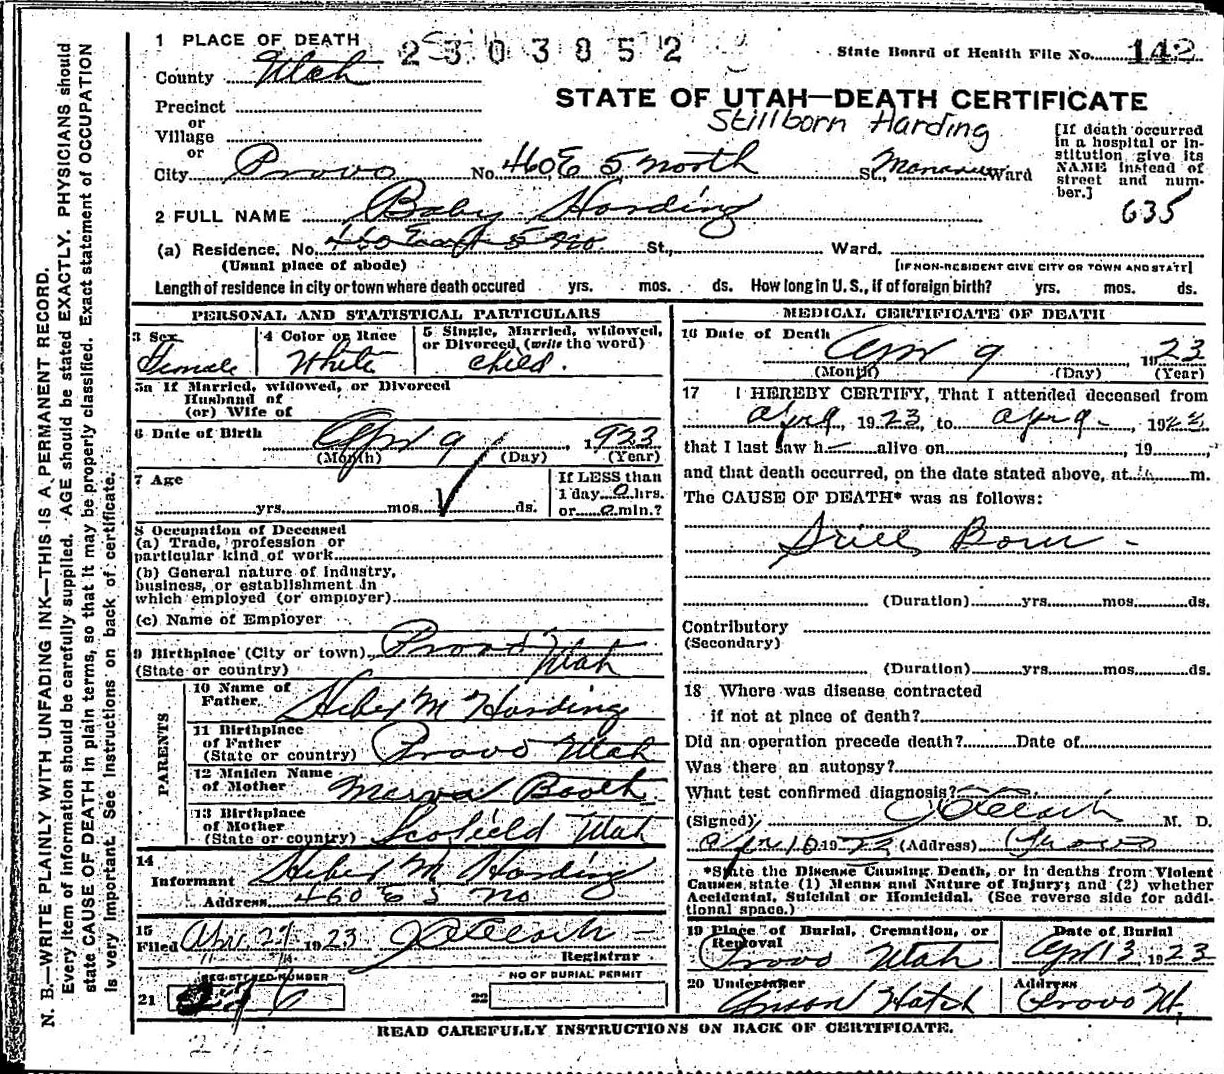 1 PLACE OF DEATH
2303852
State Board of Health File No. 142
County Utah
STATE OF UTAH—DEATH CERTIFICATE
Stillborn Harding
Precinct
or
Village
or
City Provo No. 460 E 5 North St., Ward
[If death occurred in a hospital or institution give its NAME instead of street and number.]
635
2 FULL NAME Baby Harding
(a) Residence. No. 460 East 5 No St., Ward.
(Usual place of abode) [IF NON-RESIDENT GIVE CITY OR TOWN AND STATE]
Length of residence in city or town where death occured yrs. mos. ds. How long in U. S., if of foreign birth? yrs. mos. ds.
PERSONAL AND STATISTICAL PARTICULARS
3 Sex
Female
4 Color or Race
White
5 Single, Married, widowed,
or Divorced, (write the word)
child.
5a If Married, widowed, or Divorced
Husband of
(or) Wife of
6 Date of Birth Apr 9, 1923
(Month) (Day) (Year)
7 Age
yrs. mos. ds.
If LESS than
1 day 0 hrs.
or 0 min.?
8 Occupation of Deceased
(a) Trade, profession or
particular kind of work
(b) General nature of industry,
business, or establishment in
which employed (or employer)
(c) Name of Employer
9 Birthplace (City or town) Provo
(State or country) Utah
PARENTS
10 Name of
Father Heber M Harding
11 Birthplace
of Father
(State or country) Provo Utah
12 Maiden Name
of Mother Booth
13 Birthplace
of Mother
(State or country) Scofield Utah
14
Informant Heber M Harding
Address 460 E 5 No
15
Filed Apr 27 1923
Registrar
REGISTERED NUMBER
21
NO OF BURIAL PERMIT
22
MEDICAL CERTIFICATE OF DEATH
16 Date of Death
Apr 9, 1923
(Month) (Day) (Year)
17 I HEREBY CERTIFY, That I attended deceased from
Apr 9, 1923, to Apr 9, 19
that I last saw h— alive on , 19
and that death occurred, on the date stated above, at m.
The CAUSE OF DEATH* was as follows:
Still Born -
(Duration) yrs. mos. ds.
Contributory
(Secondary)
(Duration) yrs. mos. ds.
18 Where was disease contracted
if not at place of death?
Did an operation precede death? Date of
Was there an autopsy?
What test confirmed diagnosis?
(Signed) M. D.
Apr 10 19 (Address) Provo
*State the Disease Causing Death, or in deaths from Violent
Causes, state (1) Means and Nature of Injury; and (2) whether
Accidental, Suicidal or Homicidal. (See reverse side for addi-
tional space.)
19 Place of Burial, Cremation, or
Removal
Provo Utah
Date of Burial
Apr 13 1923
20 Undertaker
Hatch
Address
Provo Ut.
READ CAREFULLY INSTRUCTIONS ON BACK OF CERTIFICATE.
N. B.—WRITE PLAINLY WITH UNFADING INK—THIS IS A PERMANENT RECORD.
Every item of information should be carefully supplied. AGE should be stated EXACTLY. PHYSICIANS should
state CAUSE OF DEATH in plain terms, so that it may be properly classified. Exact statement of OCCUPATION
is very important. See instructions on back of certificate.